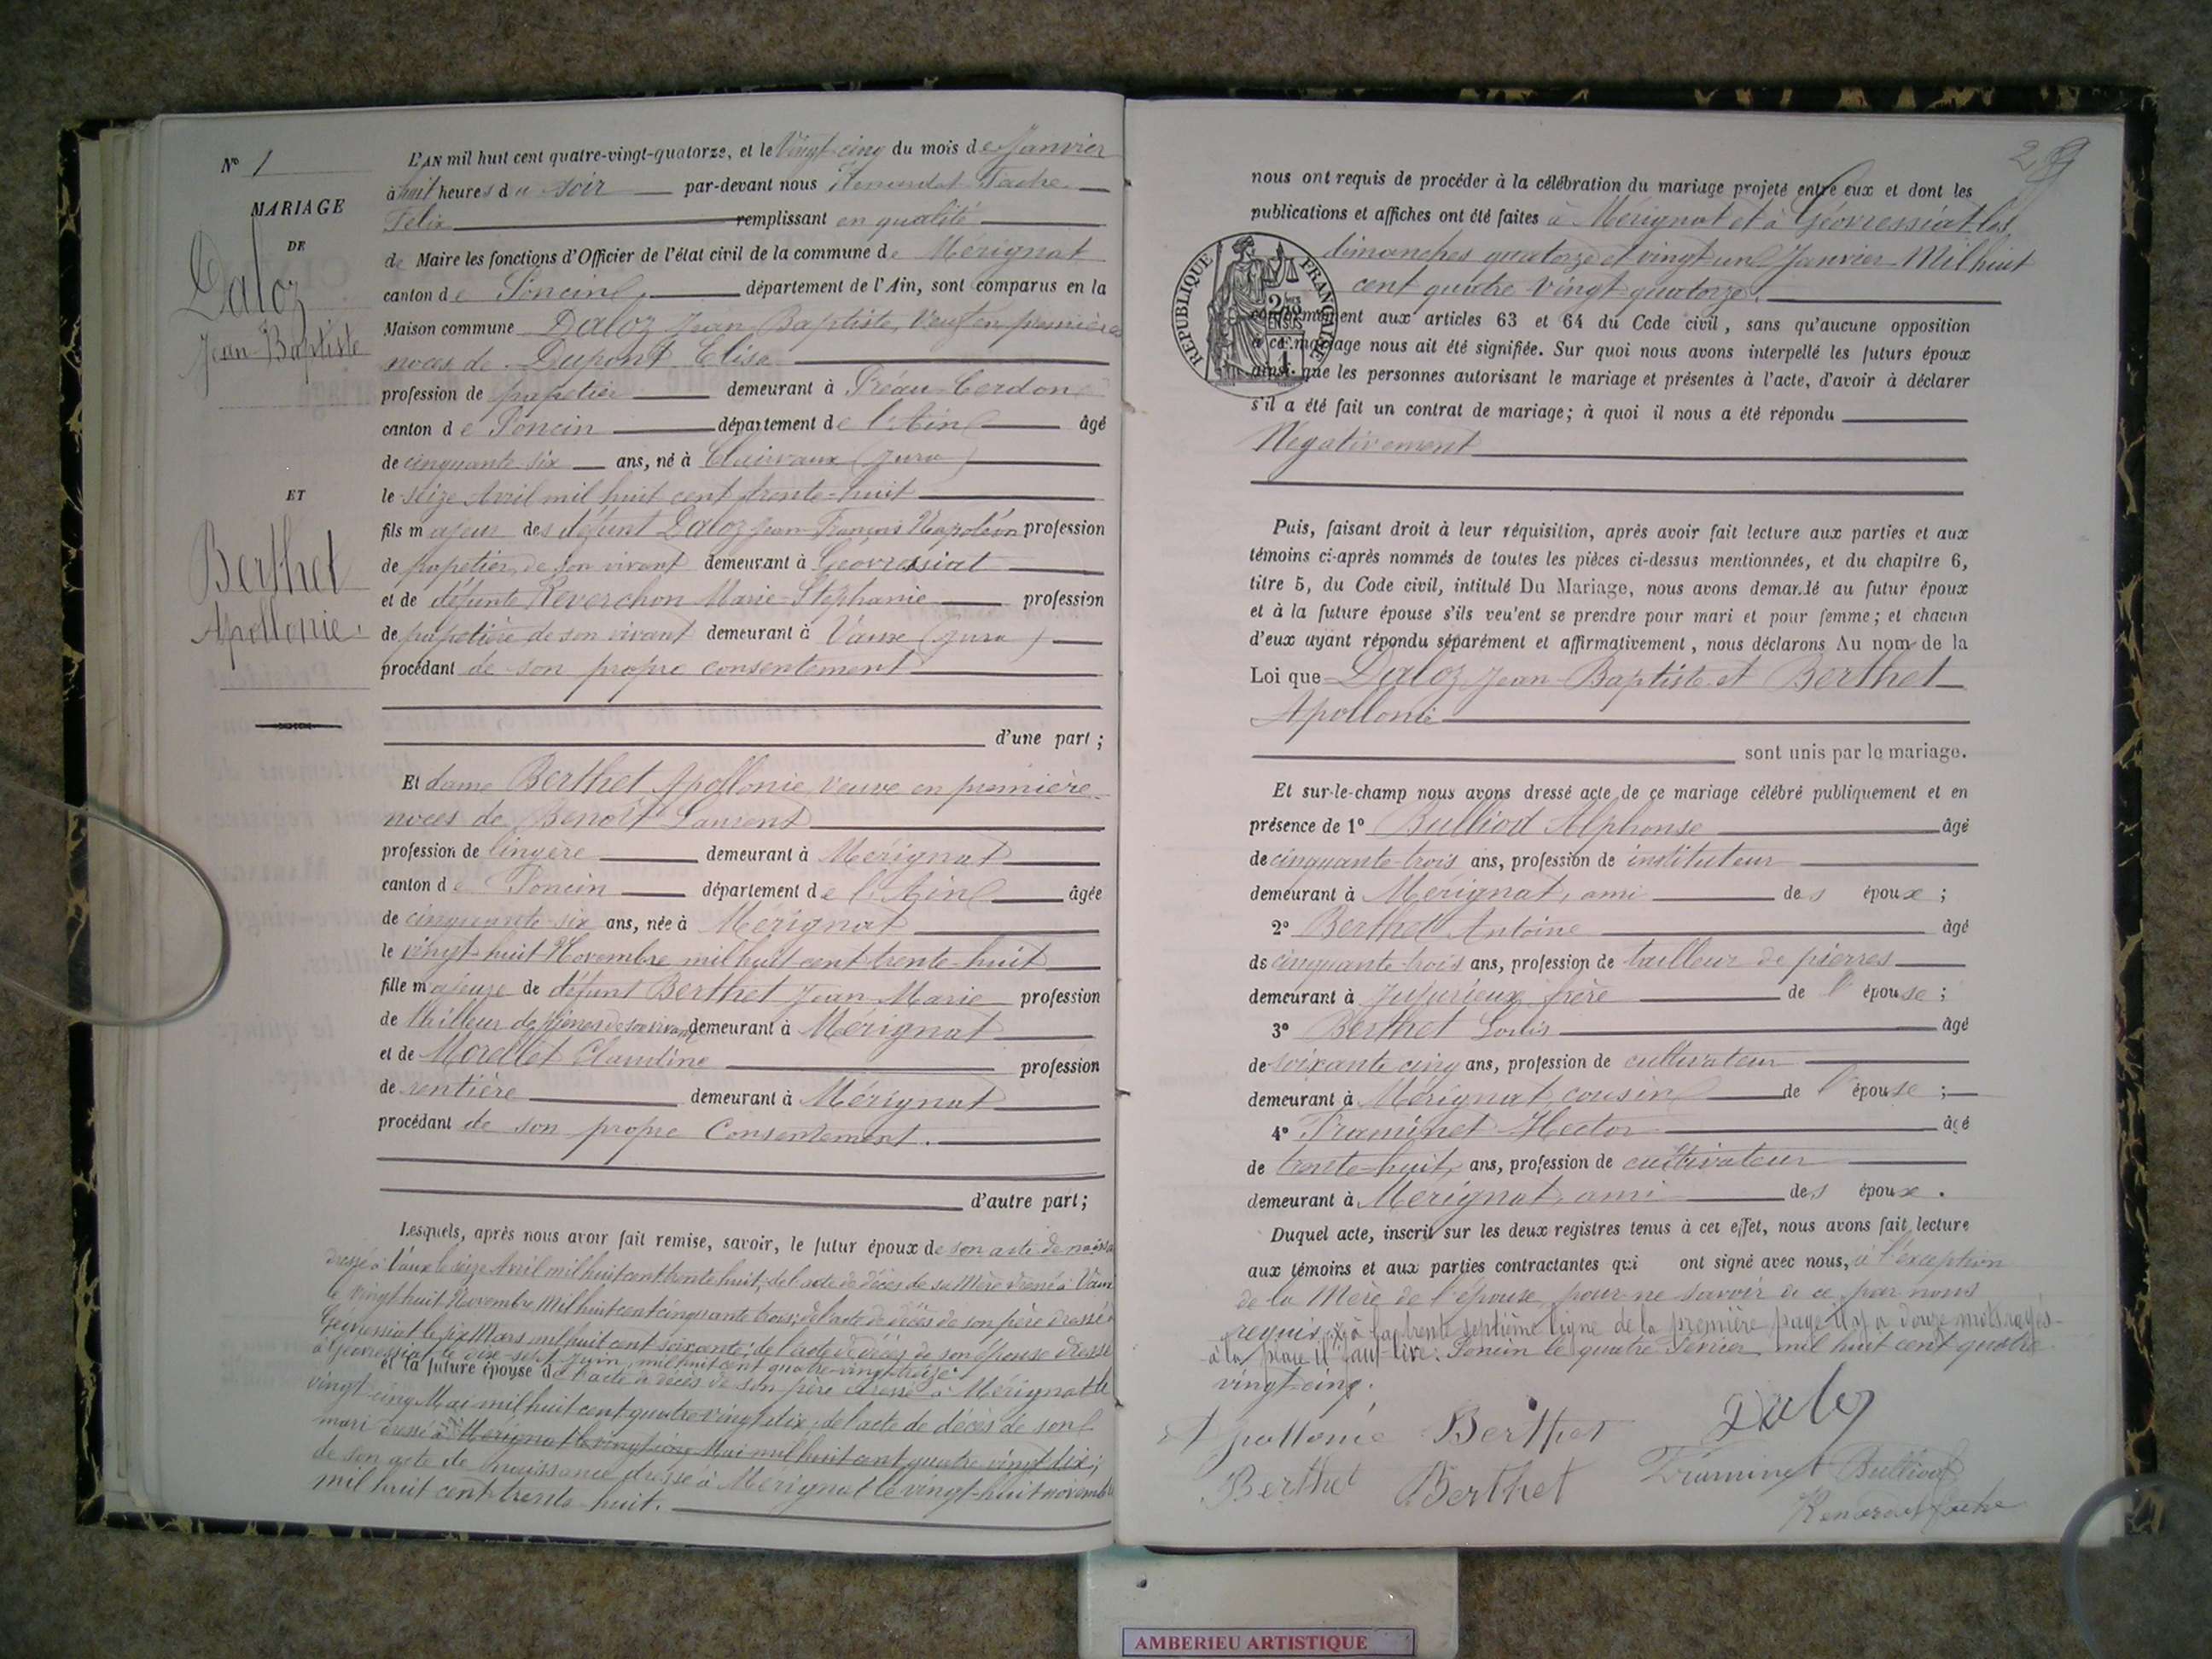 N° 1
MARIAGE
DE
Daloz
Jean-Baptiste
ET
Berthet
Apollonie.
L'AN mil huit cent quatre-vingt-quatorze, et le Vingt-cinq du mois de Janvier
à huit heures du soir par-devant nous Tache
Félix remplissant en qualité
de Maire les fonctions d'Officier de l'état civil de la commune de Mérignat
canton de Poncin, département de l'Ain, sont comparus en la
Maison commune Daloz Jean-Baptiste, Veuf en premières
noces de Dupont Elisa
profession de papetier demeurant à Préau-Cerdon
canton de Poncin département de l'Ain âgé
de cinquante-six ans, né à Clairvaux (Jura)
le seize Avril mil huit cent trente-huit
fils majeur des défunt Daloz Jean François Napoléon profession
de papetier de son vivant demeurant à Géovressiat
et de défunte Reverchon Marie-Stéphanie profession
de papetière de son vivant demeurant à Vaux (Jura)
procédant de son propre consentement
d'une part ;
Et dame Berthet Apollonie, Veuve en première
noces de Benoît Laurent
profession de lingère demeurant à Mérignat
canton de Poncin département de l'Ain âgée
de cinquante-six ans, née à Mérignat
le vingt-huit Novembre mil huit cent trente-huit
fille majeure de défunt Berthet Jean-Marie profession
de tailleur de pierres de son vivant demeurant à Mérignat
et de Morellet Claudine profession
de rentière demeurant à Mérignat
procédant de son propre Consentement.
d'autre part ;
Lesquels, après nous avoir fait remise, savoir, le futur époux de son acte de naissa
dressé à Vaux le seize Avril mil huit cent trente huit; de l'acte de décès de sa Mère dressé à Vaux
le vingt huit Novembre Mil huit cent cinquante trois; de l'acte de décès de son père dressé à
Géovressiat le six Mars mil huit cent soixante; de l'acte de décès de son épouse dressé
à Géovressiat le dix-sept Juin mil huit cent quatre-vingt-treize.
et la future épouse de l'acte de décès de son père dressé à Mérignat le
vingt-cinq Mai mil huit cent quatre vingt dix; de l'acte de décès de son
mari dressé à Mérignat le vingt cinq Mai mil huit cent quatre vingt dix;
de son acte de naissance dressé à Mérignat le vingt-huit novembre
mil huit cent trente-huit.
29
nous ont requis de procéder à la célébration du mariage projeté entre eux et dont les
publications et affiches ont été faites à Mérignat et à Géovressiat les
dimanches quatorze et vingt un Janvier Mil huit
cent quatre vingt-quatorze.
RÉPUBLIQUE FRANÇAISE
conformément aux articles 63 et 64 du Code civil, sans qu'aucune opposition
à ce mariage nous ait été signifiée. Sur quoi nous avons interpellé les futurs époux
ainsi que les personnes autorisant le mariage et présentes à l'acte, d'avoir à déclarer
s'il a été fait un contrat de mariage ; à quoi il nous a été répondu
Négativement
Puis, faisant droit à leur réquisition, après avoir fait lecture aux parties et aux
témoins ci-après nommés de toutes les pièces ci-dessus mentionnées, et du chapitre 6,
titre 5, du Code civil, intitulé Du Mariage, nous avons demandé au futur époux
et à la future épouse s'ils veulent se prendre pour mari et pour femme ; et chacun
d'eux ayant répondu séparément et affirmativement, nous déclarons Au nom de la
Loi que Daloz Jean-Baptiste et Berthet
Apollonie
sont unis par le mariage.
Et sur-le-champ nous avons dressé acte de ce mariage célébré publiquement et en
présence de 1° Bulliod Alphonse âgé
de cinquante-trois ans, profession de instituteur
demeurant à Mérignat, ami des époux ;
2° Berthet Antoine âgé
de cinquante trois ans, profession de tailleur de pierres
demeurant à Jujurieux frère de l'épouse ;
3° Berthet Louis âgé
de soixante cinq ans, profession de cultivateur
demeurant à Mérignat, cousin de l'épouse ;
4° Traminet Hector âgé
de trente-huit ans, profession de cultivateur
demeurant à Mérignat, ami des époux.
Duquel acte, inscrit sur les deux registres tenus à cet effet, nous avons fait lecture
aux témoins et aux parties contractantes qui ont signé avec nous, à l'exception
de la Mère de l'épouse pour ne savoir de ce par nous
requis. à la trente septième ligne de la première page il y a douze mots rayés
à la place il faut lire: Poncin le quatre Février mil huit cent quatre
vingt-cinq.
Apollonie Berthet Daloz
Berthet Berthet Traminet Bulliod
AMBERIEU ARTISTIQUE